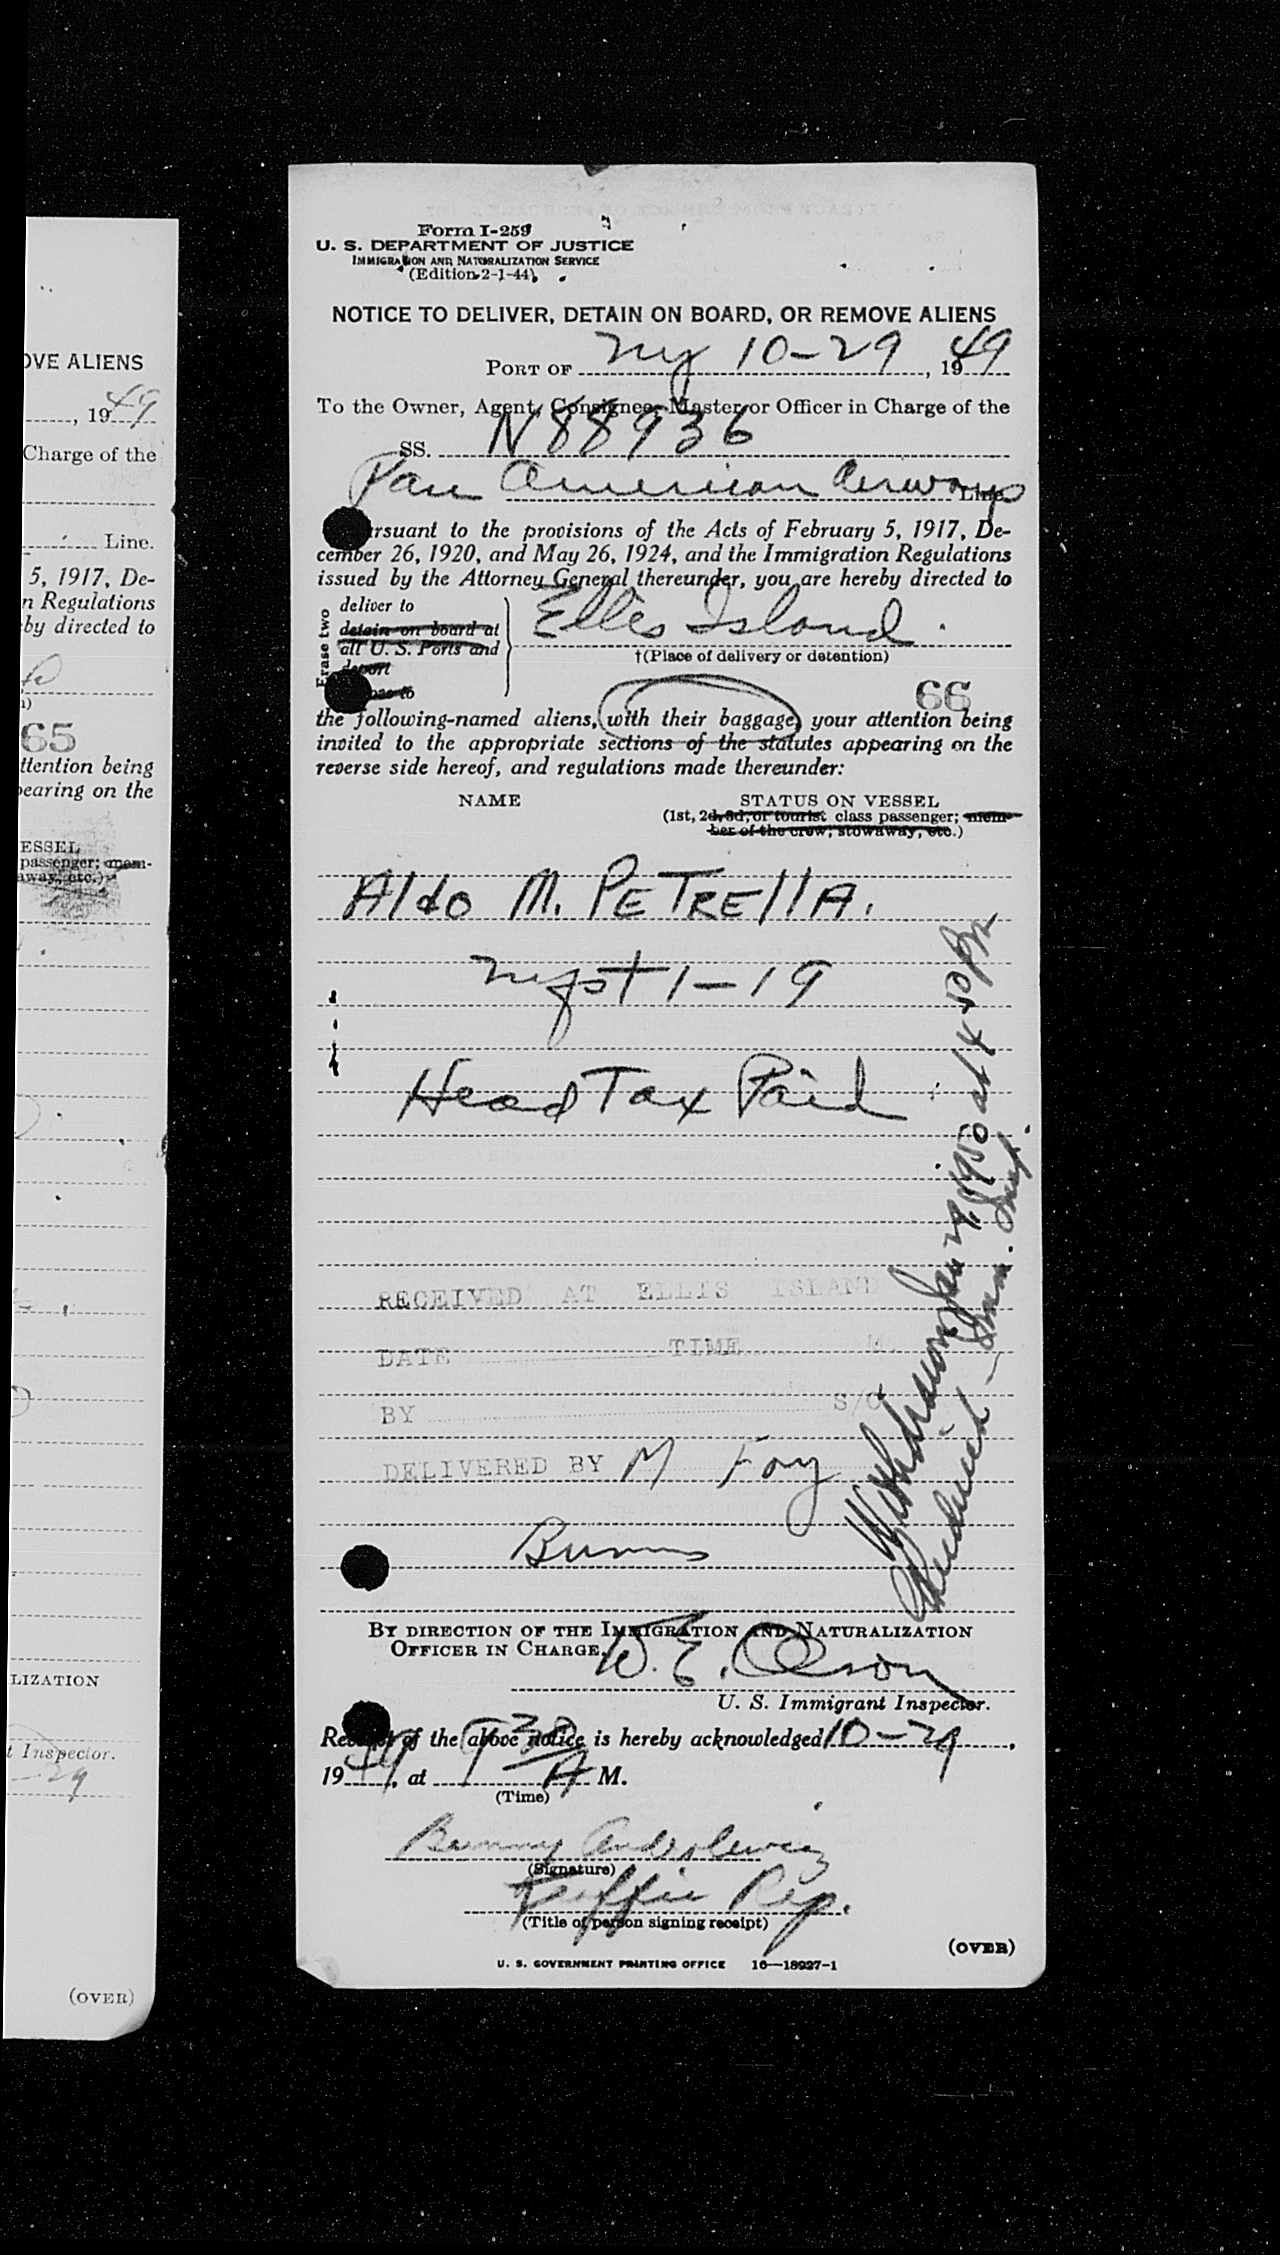 Form I-259
U. S. DEPARTMENT OF JUSTICE
IMMIGRATION AND NATURALIZATION SERVICE
(Edition 2-1-44)
NOTICE TO DELIVER, DETAIN ON BOARD, OR REMOVE ALIENS
PORT OF NY 10-29, 1949
To the Owner, Agent, Consignee, Master or Officer in Charge of the
SS. N88936
Pan American Airways Line.
rsuant to the provisions of the Acts of February 5, 1917, De-
cember 26, 1920, and May 26, 1924, and the Immigration Regulations
issued by the Attorney General thereunder, you are hereby directed to
Erase two
deliver to
detain on board at
all U. S. Ports and
deport
Ellis Island.
†(Place of delivery or detention)
66
the following-named aliens, with their baggage, your attention being
invited to the appropriate sections of the statutes appearing on the
reverse side hereof, and regulations made thereunder:
NAME
STATUS ON VESSEL
(1st, 2d, 3d, or tourist class passenger; mem-
ber of the crew; stowaway, etc.)
Aldo M. PETRELLA.
1-19
Head Tax Paid
RECEIVED AT ELLIS ISLAND
DATE TIME M.
BY S/O
DELIVERED BY M Foy
Burns
Withdrawn Jan 29, 1950 at 4 50 PM
Imm. Insp.
BY DIRECTION OF THE IMMIGRATION AND NATURALIZATION
OFFICER IN CHARGE.
W. E. Olson
U. S. Immigrant Inspector.
Receipt of the above notice is hereby acknowledged 10-29,
1949, at 9 30 A M.
(Time)
(Signature)
Traffic Rep.
(Title of person signing receipt)
(OVER)
U. S. GOVERNMENT PRINTING OFFICE 16—18927-1
OVE ALIENS
, 1949
Charge of the
Line.
5, 1917, De-
n Regulations
by directed to
65
ttention being
pearing on the
ESSEL
passenger; mem-
away, etc.)
LIZATION
t Inspector.
-29
(OVER)